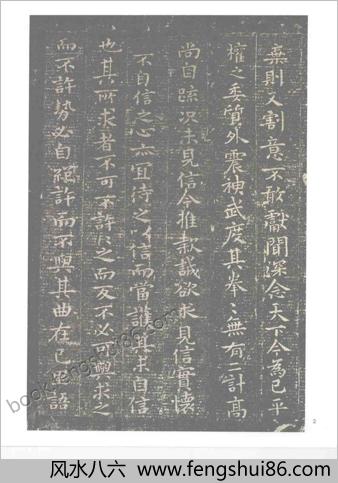 棄則又割意不敢獻聞深念天下今為已平
權之委質外震神武度其拳〻無有二計高
尚自疏況未見信今推款誠欲求見信實懷
不自信之心亦宜待之以信而當護其未自信
也其所求者不可不許〻之而反不必可與求之
而不許勢必自絕許而不與其曲在己里語
2
book.fengshui86.com
风水八六：www.fengshui86.com